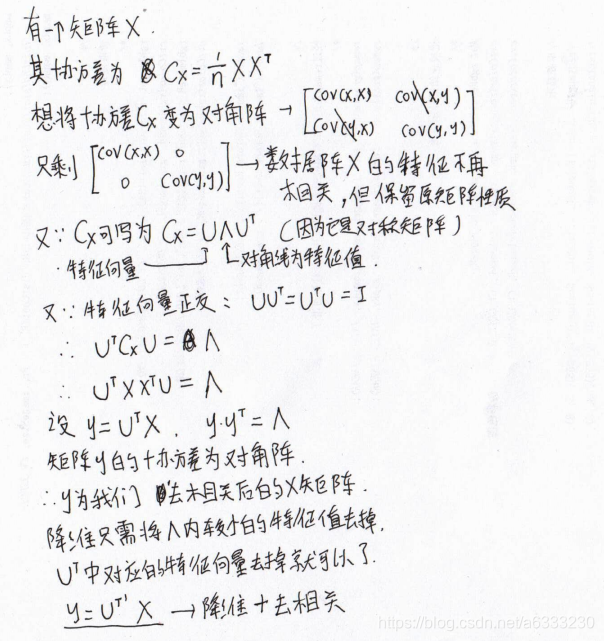 有一个矩阵X.
其协方差为 Cx = 1/n XXᵀ
想将协方差Cx 变为对角阵 → [cov(x,x) cov(x,y)
cov(y,x) cov(y,y)]
只剩 [cov(x,x) 0
0 cov(y,y)] → 数据阵X的特征不再
相关,但保留原矩阵性质
又∵ Cx可写为 Cx = UΛUᵀ (因为它是对称矩阵)
特征向量 对角线为特征值.
又∵ 特征向量正交: UUᵀ = UᵀU = I
∴ UᵀCxU = Λ
∴ UᵀXXᵀU = Λ
设 y = UᵀX. y·yᵀ = Λ
矩阵y的协方差为对角阵.
∴ y为我们去相关后的X矩阵.
降维只需将Λ内较小的特征值去掉,
Uᵀ中对应的特征向量去掉就可以了.
y = Uᵀ' X → 降维+去相关
https://blog.csdn.net/a6333230